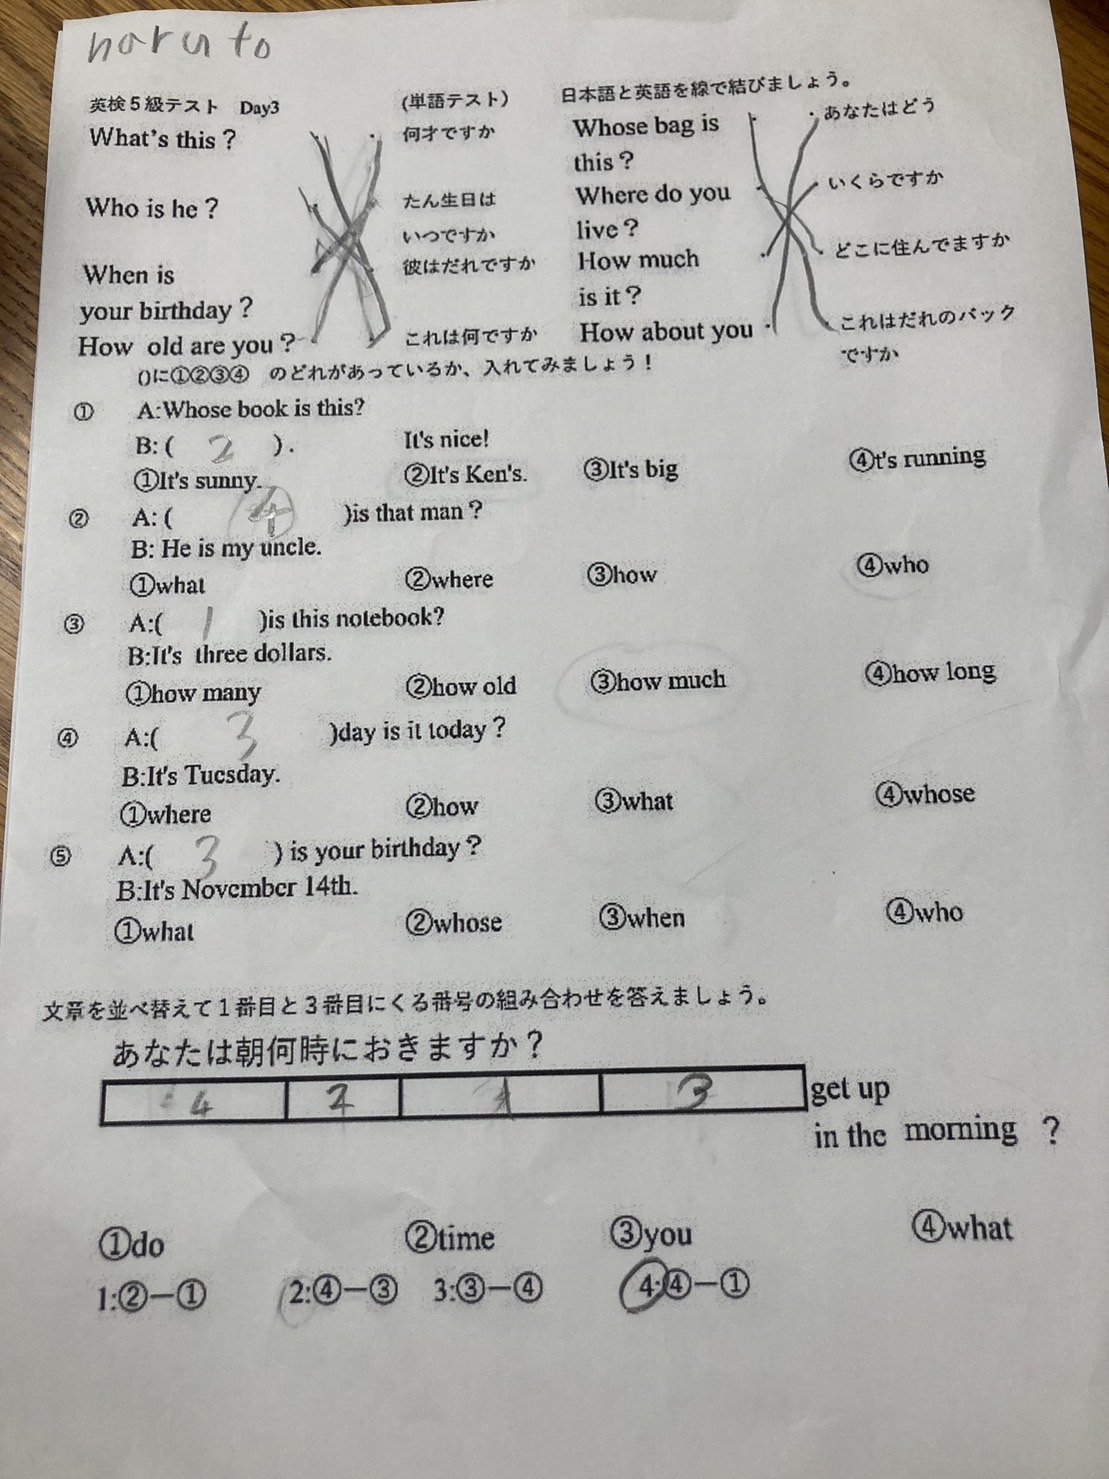 naruto
英検５級テスト Day3 (単語テスト) 日本語と英語を線で結びましょう。
What's this？ 何才ですか Whose bag is あなたはどう
this？
Who is he？ たん生日は Where do you いくらですか
いつですか live？
When is 彼はだれですか How much どこに住んでますか
your birthday？ is it？
How old are you？ これは何ですか How about you これはだれのバック
ですか
()に①②③④ のどれがあっているか、入れてみましょう！
① A:Whose book is this?
B: ( 2 ) . It's nice!
①It's sunny. ②It's Ken's. ③It's big ④t's running
② A: ( 4 )is that man？
B: He is my uncle.
①what ②where ③how ④who
③ A:( 1 )is this notebook?
B:It's three dollars.
①how many ②how old ③how much ④how long
④ A:( 3 )day is it today？
B:It's Tuesday.
①where ②how ③what ④whose
⑤ A:( 3 ) is your birthday？
B:It's November 14th.
①what ②whose ③when ④who
文章を並べ替えて１番目と３番目にくる番号の組み合わせを答えましょう。
あなたは朝何時におきますか？
4 2 1 3 get up
in the morning ？
①do ②time ③you ④what
1:②－① 2:④－③ 3:③－④ 4:④－①